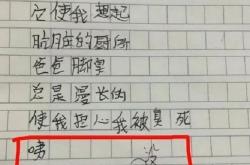 它使我想起
肮脏的厕所
爸爸脚臭
总是漫长的
使我担心我被臭死
唠 没